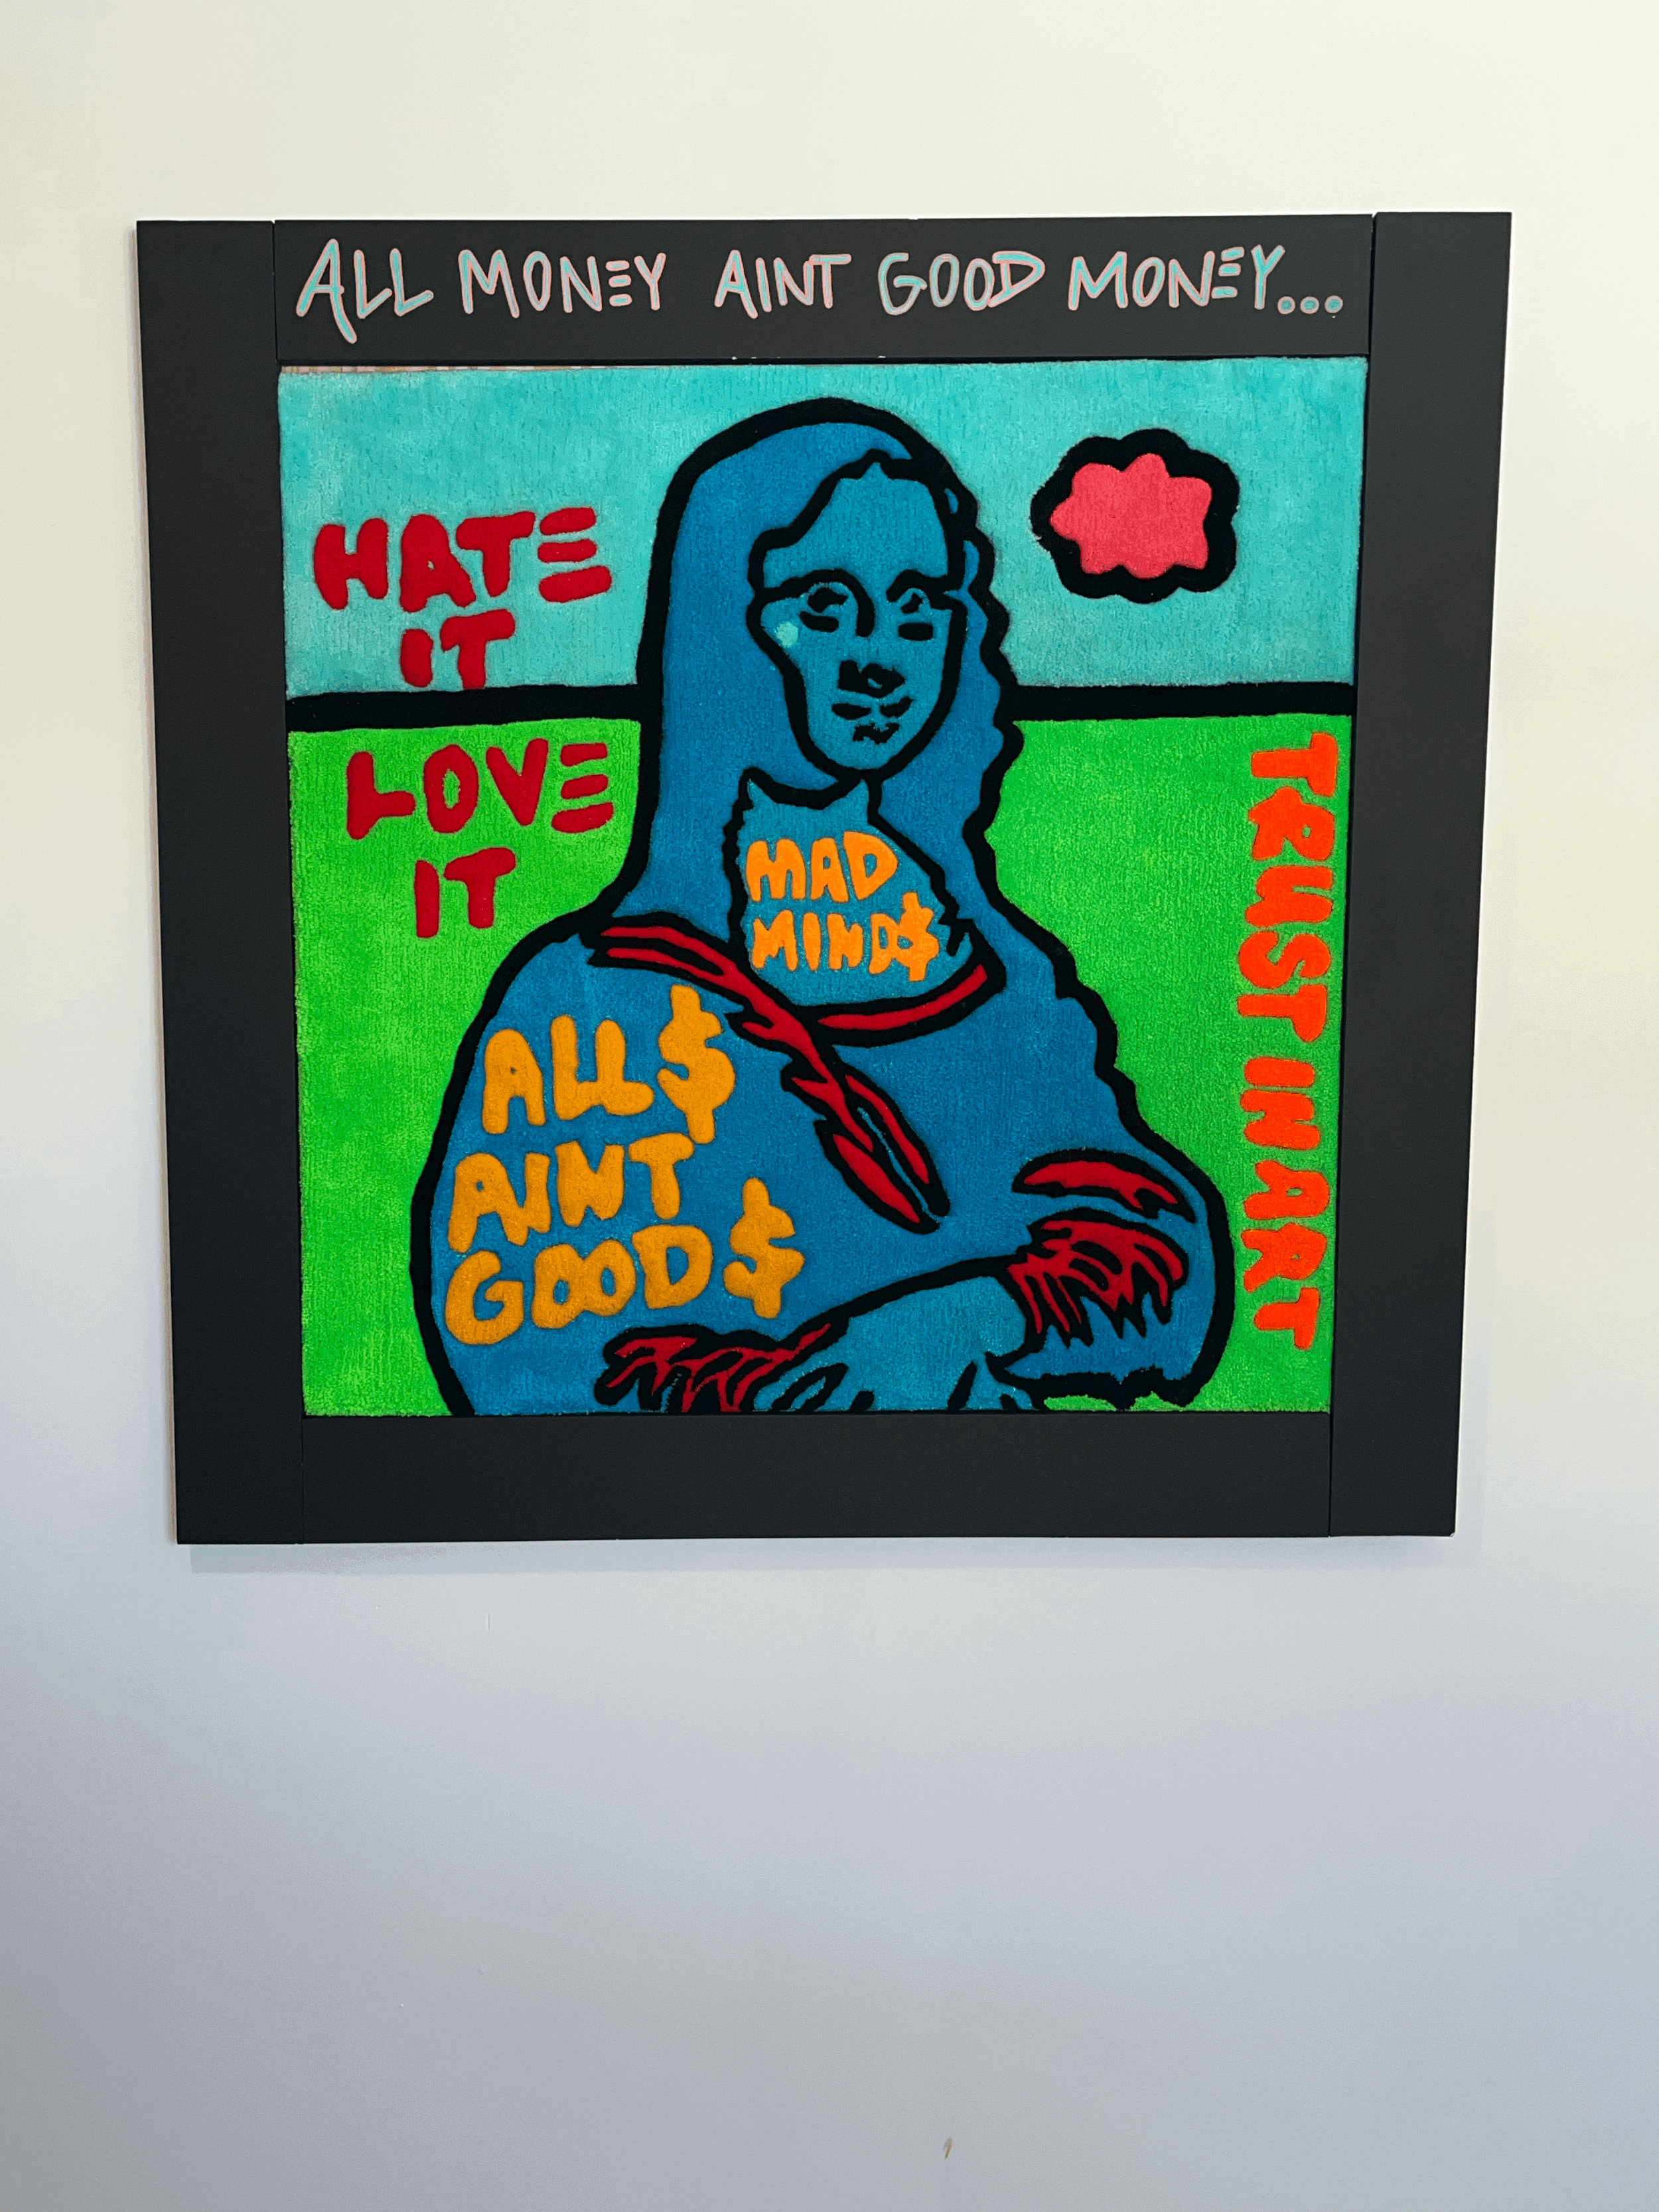 ALL MONEY AINT GOOD MONEY...
HATE
IT
LOVE
IT
MAD
MIND$
ALL$
AINT
GOOD$
TRUST IN ART